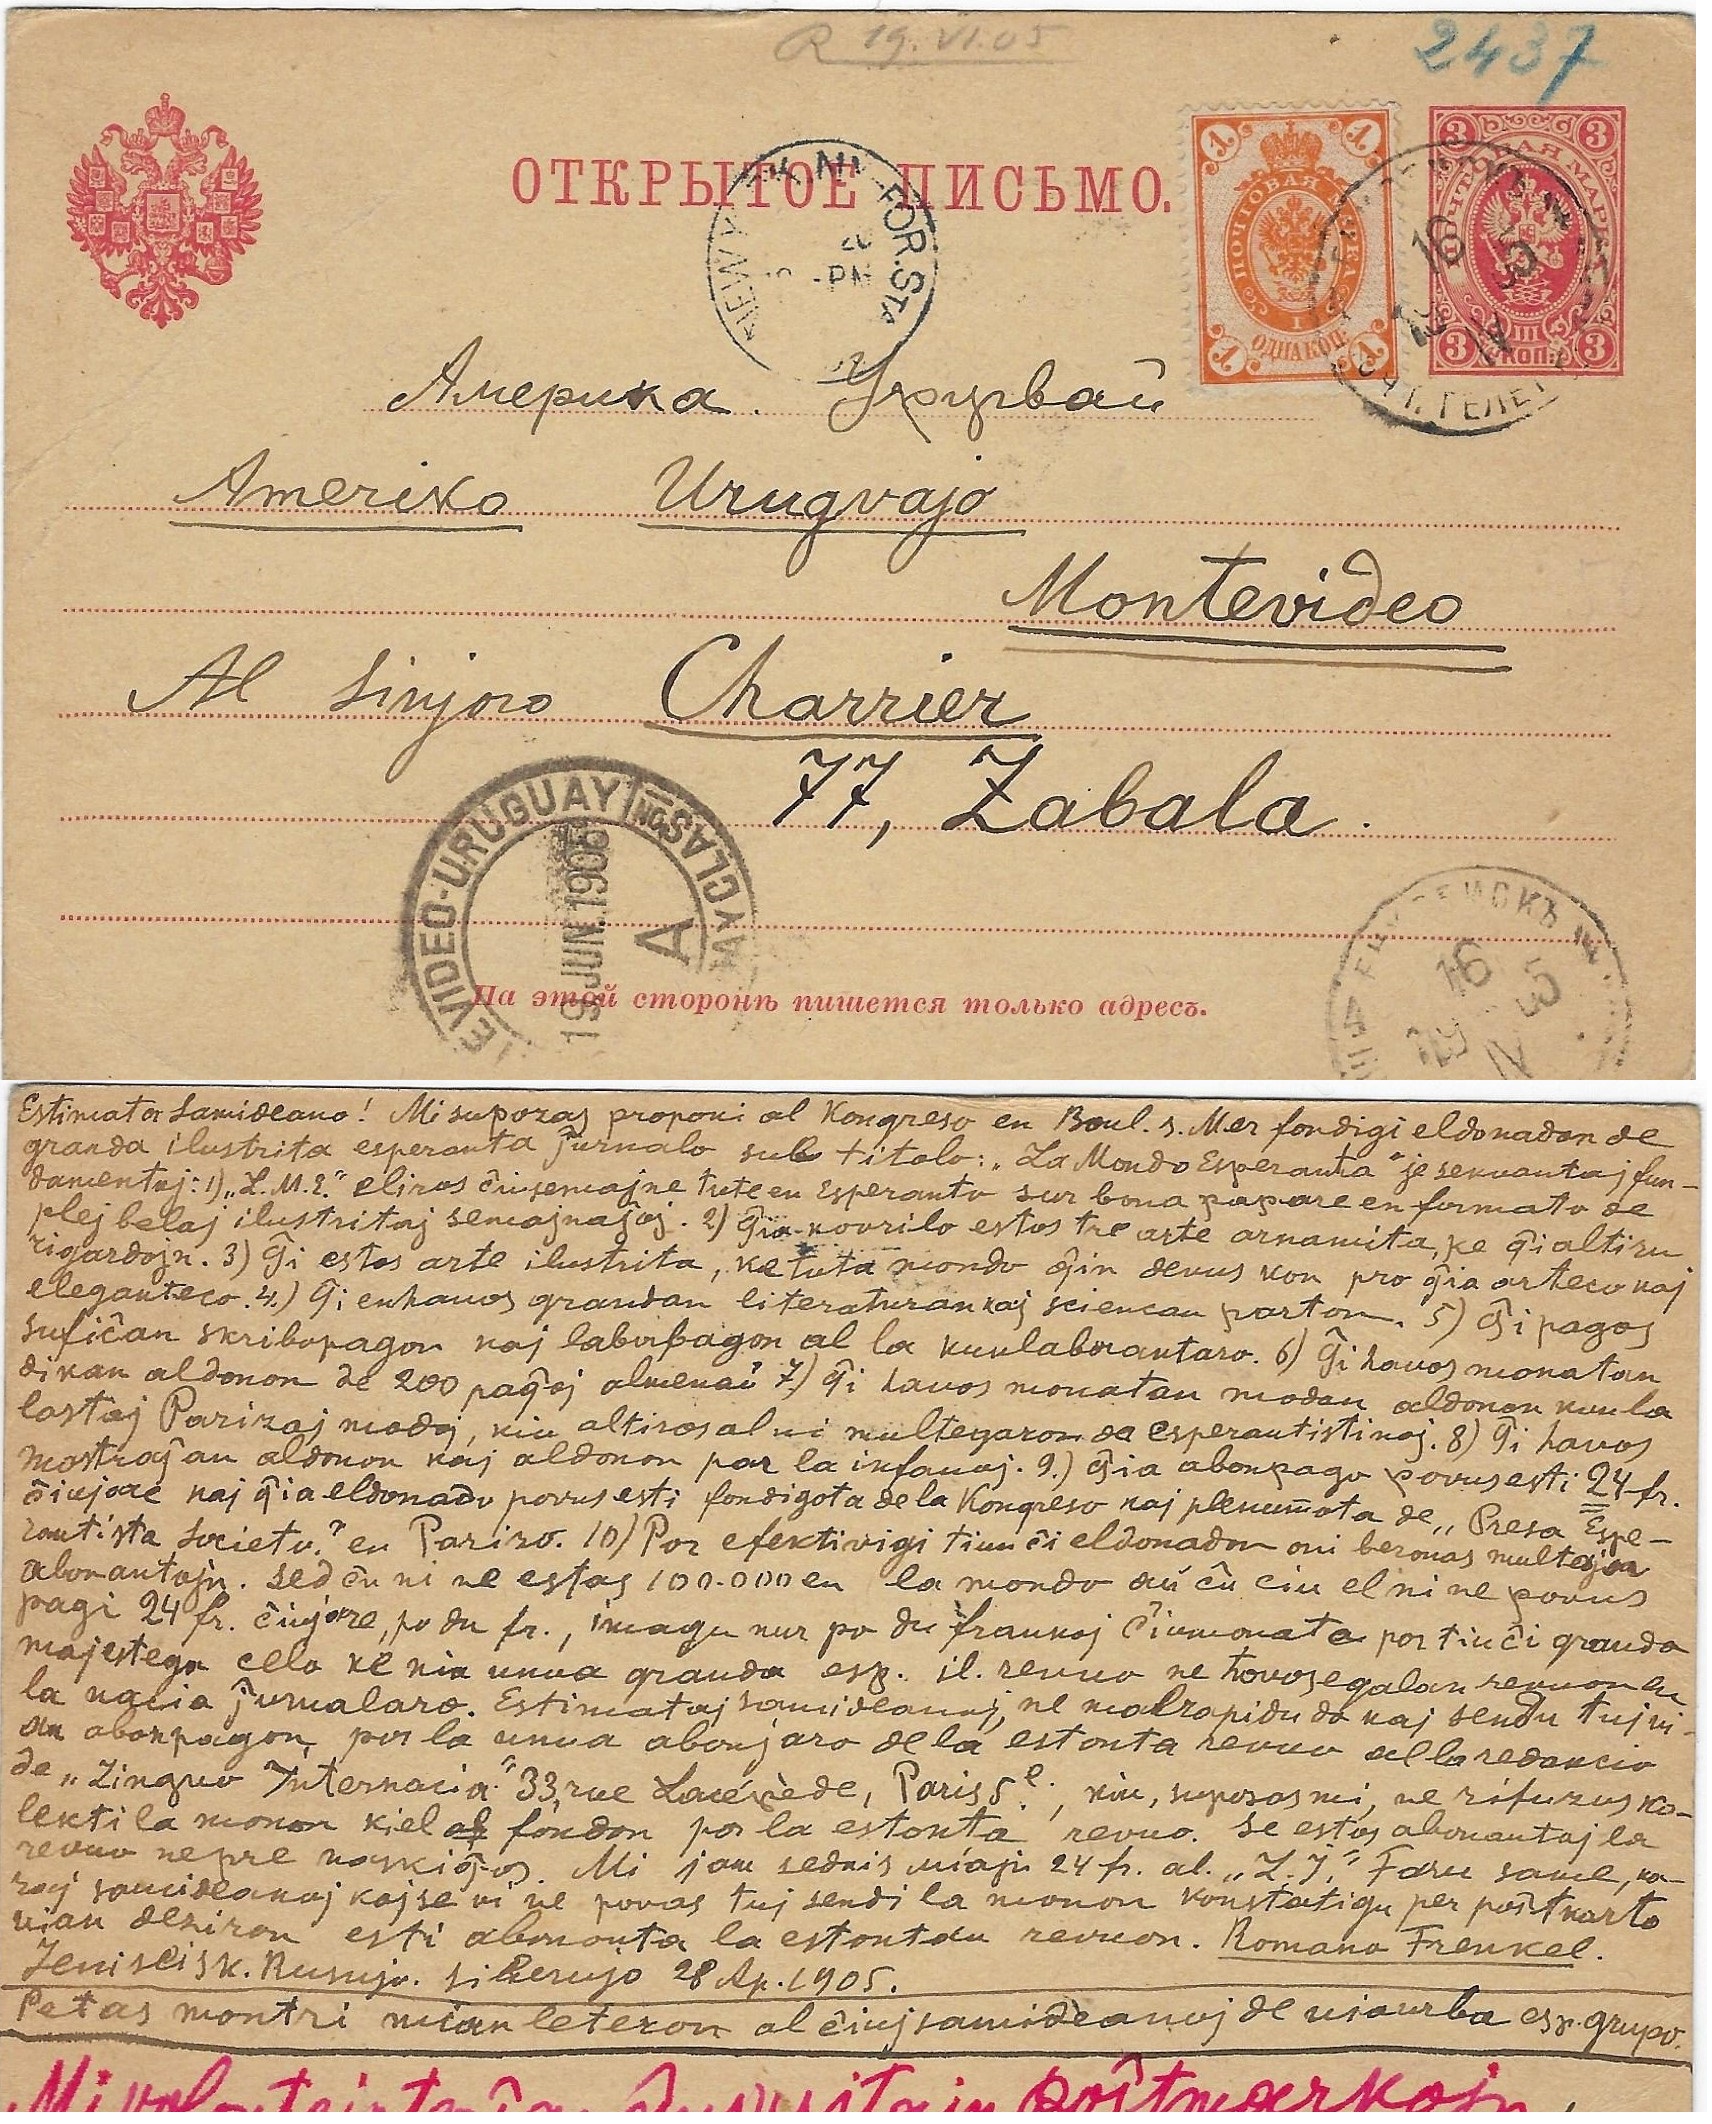 R 19.VI.05
2437
ОТКРЫТОЕ ПИСЬМО.
1 1
ПОЧТОВАЯ МАРКА
ОДНА КОП.
1 1
3 3
ПОЧТОВАЯ МАРКА
3 КОП. 3
NEW YORK, N.Y. FOR. STA
PM
16 IV 5
ПОЧТ. ТЕЛЕГР.
Америка. Уругвай
Ameriko Urugvajo
Montevideo
Al Sinjoro Charrier
77, Zabala.
MONTEVIDEO-URUGUAY
19 JUN. 1905
A
На этой сторонѣ пишется только адресъ.
ЕНИСЕЙСКЪ
16 IV 5
19
Estimata Samideano! Mi supozas proponi al Kongreso en Boul. s. Mer fondigi eldonadon de
granda ilustrita esperanta ĵurnalo sub titolo: „La Mondo Esperanta" je sekvantaj fun-
damentoj: 1) „L.M.E." eliros ĉiusemajne tute en Esperanto sur bona papare en formato de
plej belaj ilustritaj semajnaĵoj. 2) Ĝia kovrilo estos tre arte arnamita, ke ĝi altiru
rigardojn. 3) Ĝi estos arte ilustrita, ke tuta mondo ĝin devus kon pro ĝia arteco kaj
eleganteco. 4.) Ĝi enhavos grandan literaturan kaj sciencan parton. 5) Ĝi pagos
sufiĉan skribopagon kaj laborpagon al la kunlaborantaro. 6) Ĝi havos monatan
dikan aldonon de 200 paĝoj almenaŭ 7.) Ĝi havos monatan modan aldonon kun la
lastaj Parizaj modoj, kiu altiros al ni multegaron da esperantistinoj. 8) Ĝi havos
mostraĵan aldonon kaj aldonon por la infanoj. 9.) Ĝia abonpago povus esti 24 fr.
ĉiujare kaj ĝia eldonado povus esti fondigota de la Kongreso kaj plenumota de „Presa Espe-
rantista Societo." en Parizo. 10) Por efektivigi tiun ĉi eldonadon oni bezonas multajn
abonantojn. Sed ĉu ni ne estas 100.000 en la mondo aŭ ĉu ciu el ni ne povus
pagi 24 fr. ĉiujare, po du fr., imagu nur po du frankoj ĉiumonate por tiu ĉi granda
majestega celo ke nia unua granda esp. il. revuo ne havos egalan revuon en
la nacia ĵurnalaro. Estimataj samideanoj, ne malrapidu do kaj sendu tuj vi-
an abonpagon por la unua abonjaro de la estonta revuo al la redakcio
de „Lingvo Internacia" 33, rue Lacépède, Paris 5e., kiu, supozas mi, ne rifuzus ko-
lekti la monon kiel fondon por la estonta revuo. Se estos abonantoj la
revuo nepre naskiĝos. Mi jam sednis miajn 24 fr. al „L.I." Faru same, ka-
raj samideanoj kaj se vi ne povas tuj sendi la monon konstatigu per poŝtkarto
vian deziron esti abonanta la estontan revuon. Romano Frenkel.
Jeniseisk. Rusujo. Siberujo 28 Ap. 1905.
Petas montri mian leteron al ĉiuj samideanoj de via urba esp. grupo.
Mi poŝtmarkojn